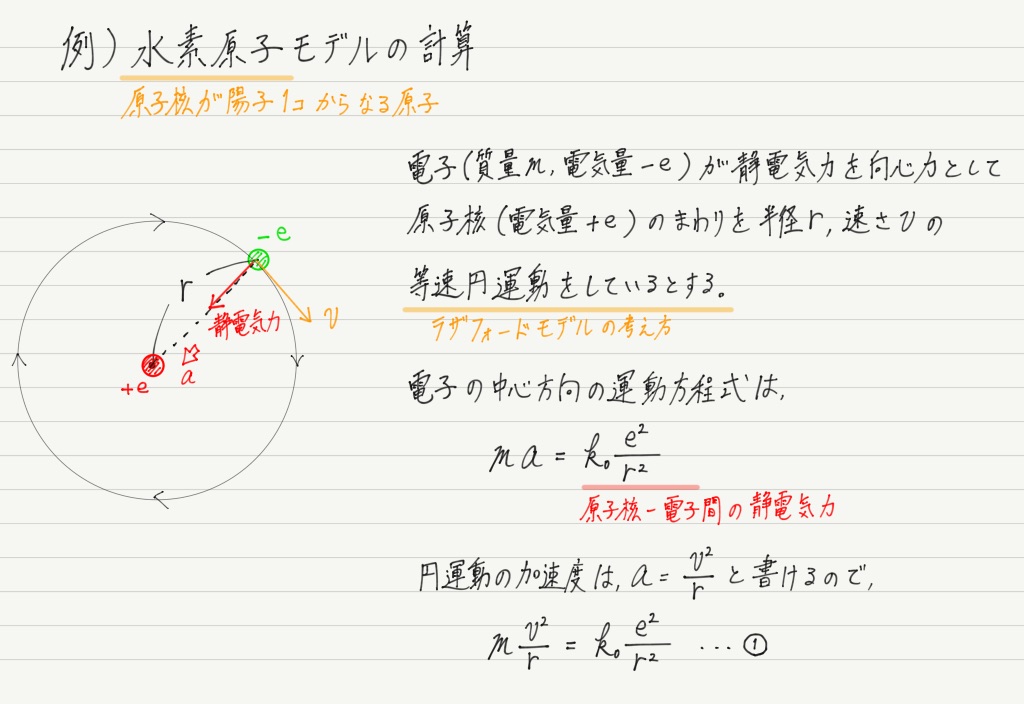 例) 水素原子モデルの計算
原子核が陽子1コからなる原子
電子(質量m, 電気量-e)が静電気力を向心力として
原子核(電気量+e)のまわりを半径r, 速さvの
等速円運動をしているとする。
ラザフォードモデルの考え方
-e
r
v
静電気力
a
+e
電子の中心方向の運動方程式は,
ma = k₀ e²/r²
原子核-電子間の静電気力
円運動の加速度は, a = v²/r と書けるので,
m v²/r = k₀ e²/r² … ①